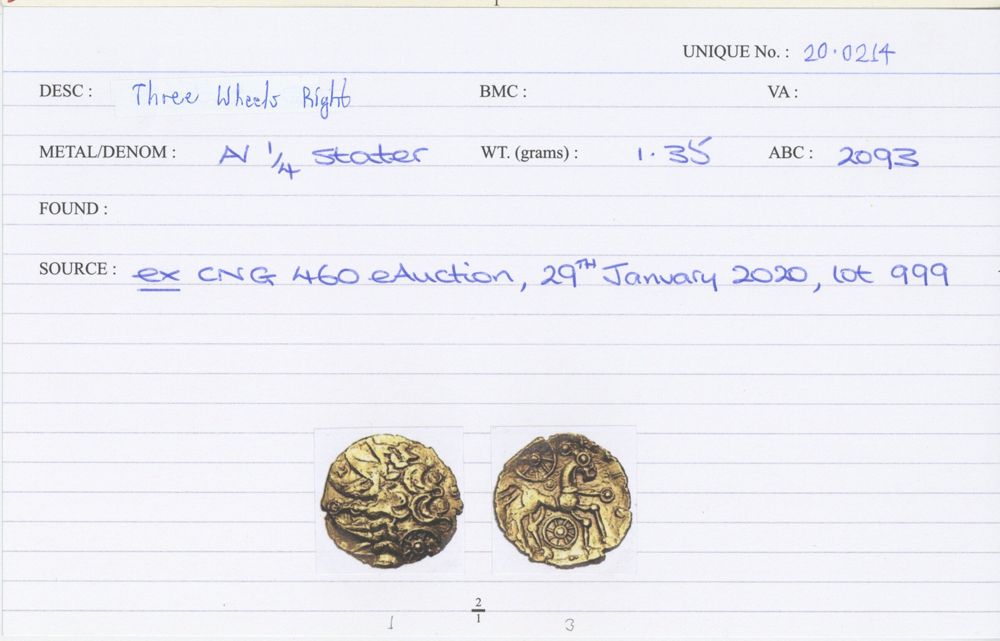 UNIQUE No. : 20.0214
DESC : Three Wheels Right BMC : VA :
METAL/DENOM : AV 1/4 Stater WT. (grams) : 1.35 ABC : 2093
FOUND :
SOURCE : ex CNG 460 eAuction, 29TH January 2020, lot 999
2/1
1 3